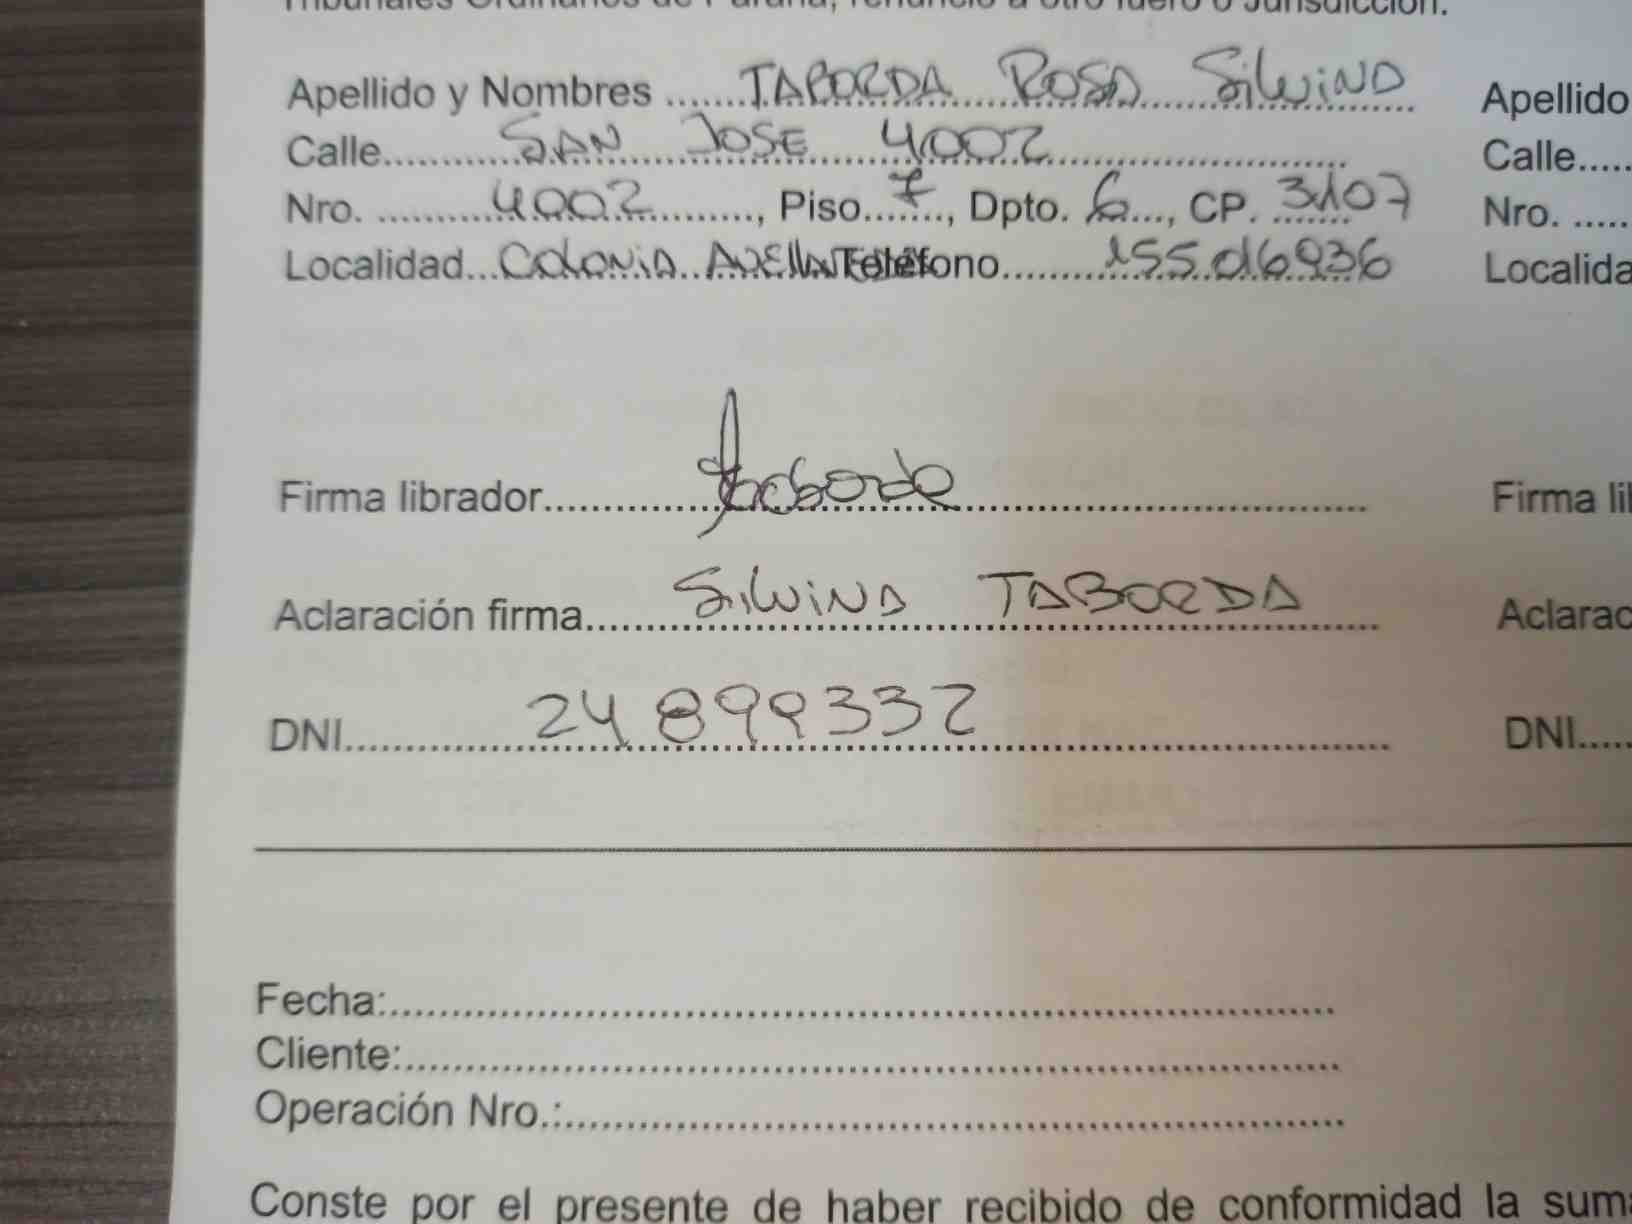 Tribunales Ordinarios de Paraná, renuncio a otro fuero o Jurisdicción.
Apellido y Nombres ....... TABORDA ROSA Silvina Apellido
Calle........... SAN JOSE 4002 ........... Calle.....
Nro. ........... 4002 ..........., Piso...7...., Dpto. 6...., CP. 3107 Nro. .....
Localidad... Colonia Avella Teléfono........ 155016936 Localida
Firma librador............ Taborda ............ Firma li
Aclaración firma....... Silvina TABORDA ....... Aclarac
DNI............ 24 899332 ............ DNI.....
Fecha:............
Cliente:............
Operación Nro.:............
Conste por el presente de haber recibido de conformidad la suma